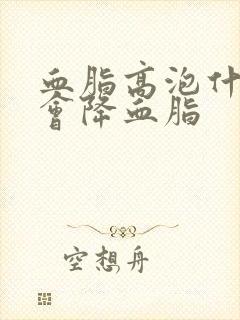 血脂高泡什
會降血脂
空想舟